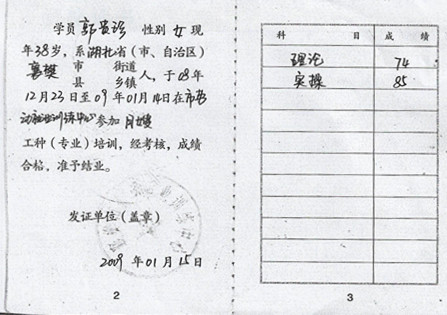 学员 郭贵 性别 女 现
年 38 岁，系 湖北 省（市、自治区）
襄樊 市 街道
县 乡镇 人，于 08 年
12 月 23 日至 09 年 01 月 14 日在 市劳
动 训练中心 参加 月嫂
工种（专业）培训，经考核，成绩
合格，准予结业。
发证单位（盖章）
2009 年 01 月 15 日
2
科 目 成 绩
理论 74
实操 85
3